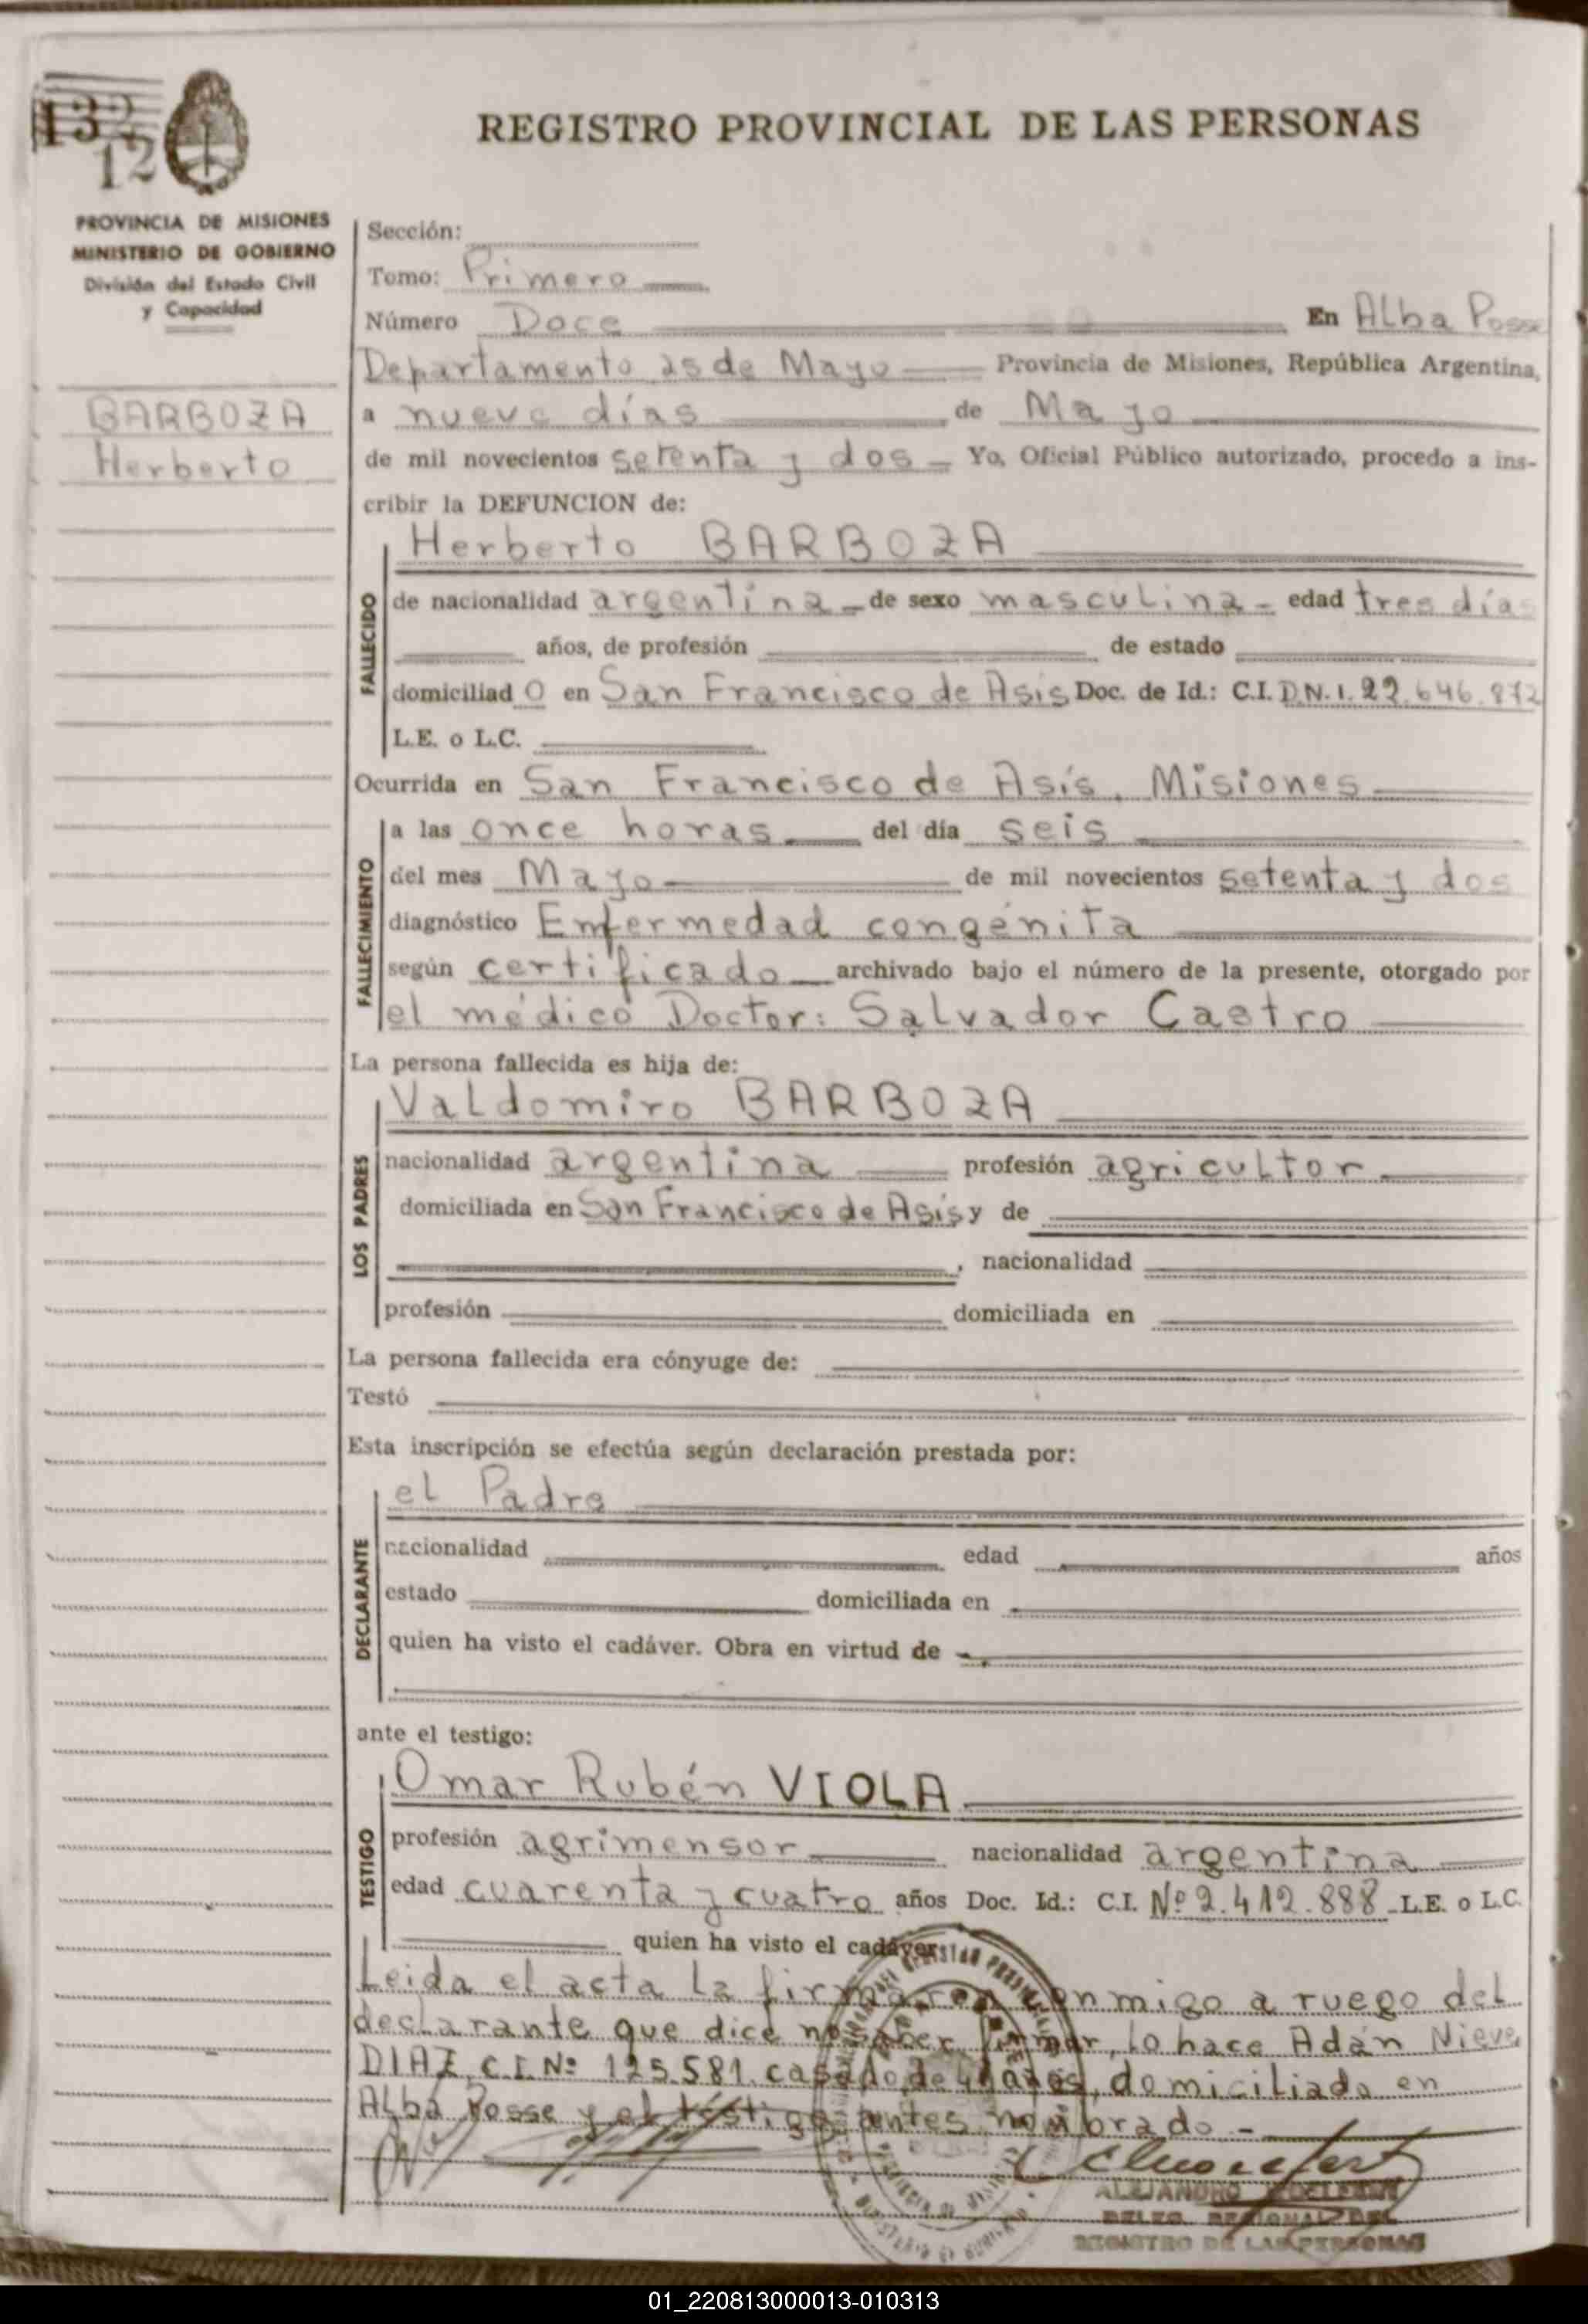 132
12
REGISTRO PROVINCIAL DE LAS PERSONAS
PROVINCIA DE MISIONES
MINISTERIO DE GOBIERNO
División del Estado Civil
y Capacidad
BARBOZA
Herberto
Sección:
Tomo: Primero
Número Doce En Alba Posse
Departamento 25 de Mayo Provincia de Misiones, República Argentina,
a nueve días de Mayo
de mil novecientos setenta y dos Yo, Oficial Público autorizado, procedo a ins-
cribir la DEFUNCION de:
Herberto BARBOZA
FALLECIDO
de nacionalidad argentina de sexo masculina edad tres días
años, de profesión de estado
domiciliado en San Francisco de Asis Doc. de Id.: C.I. D.N.I. 22.646.872
L.E. o L.C.
Ocurrida en San Francisco de Asís. Misiones
FALLECIMIENTO
a las once horas del día seis
del mes Mayo de mil novecientos setenta y dos
diagnóstico Enfermedad congénita
según certificado archivado bajo el número de la presente, otorgado por
el médico Doctor: Salvador Castro
La persona fallecida es hija de:
LOS PADRES
Valdomiro BARBOZA
nacionalidad argentina profesión agricultor
domiciliada en San Francisco de Asis y de
, nacionalidad
profesión domiciliada en
La persona fallecida era cónyuge de:
Testó
Esta inscripción se efectúa según declaración prestada por:
DECLARANTE
el Padre
nacionalidad edad años
estado domiciliada en
quien ha visto el cadáver. Obra en virtud de
ante el testigo:
TESTIGO
Omar Rubén VIOLA
profesión agrimensor nacionalidad argentina
edad cuarenta y cuatro años Doc. Id.: C.I. Nº 2.412.888 L.E. o L.C.
quien ha visto el cadáver.
Leida el acta la firmaron conmigo a ruego del
declarante que dice no saber firmar, lo hace Adán Nieve
DIAZ, C.I. Nº 125.581 casado, de 41 años, domiciliado en
Alba Posse y el testigo antes nombrado.-
ALEJANDRO
DELEG. REGIONAL DEL
REGISTRO DE LAS PERSONAS
01_220813000013-010313